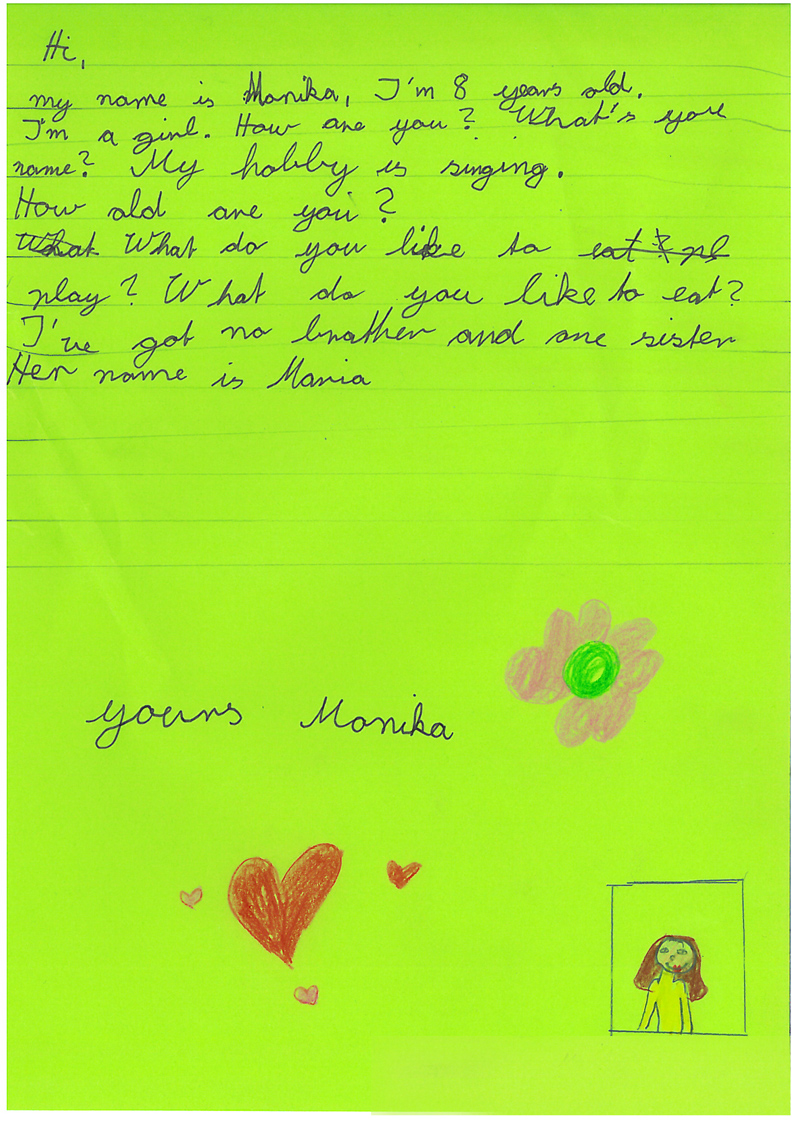 Hi,
my name is Monika, I'm 8 years old.
I'm a girl. How are you? What's you
name? My hobby is singing.
How old are you?
What What do you like to eat? pl
play? What do you like to eat?
I've got no brother and one sister
Her name is Maria
yours Monika